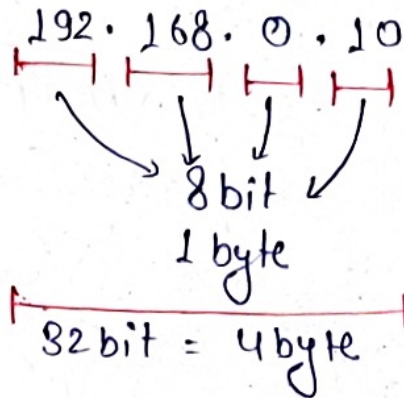 192. 168. 0. 10
8 bit
1 byte
32 bit = 4 byte